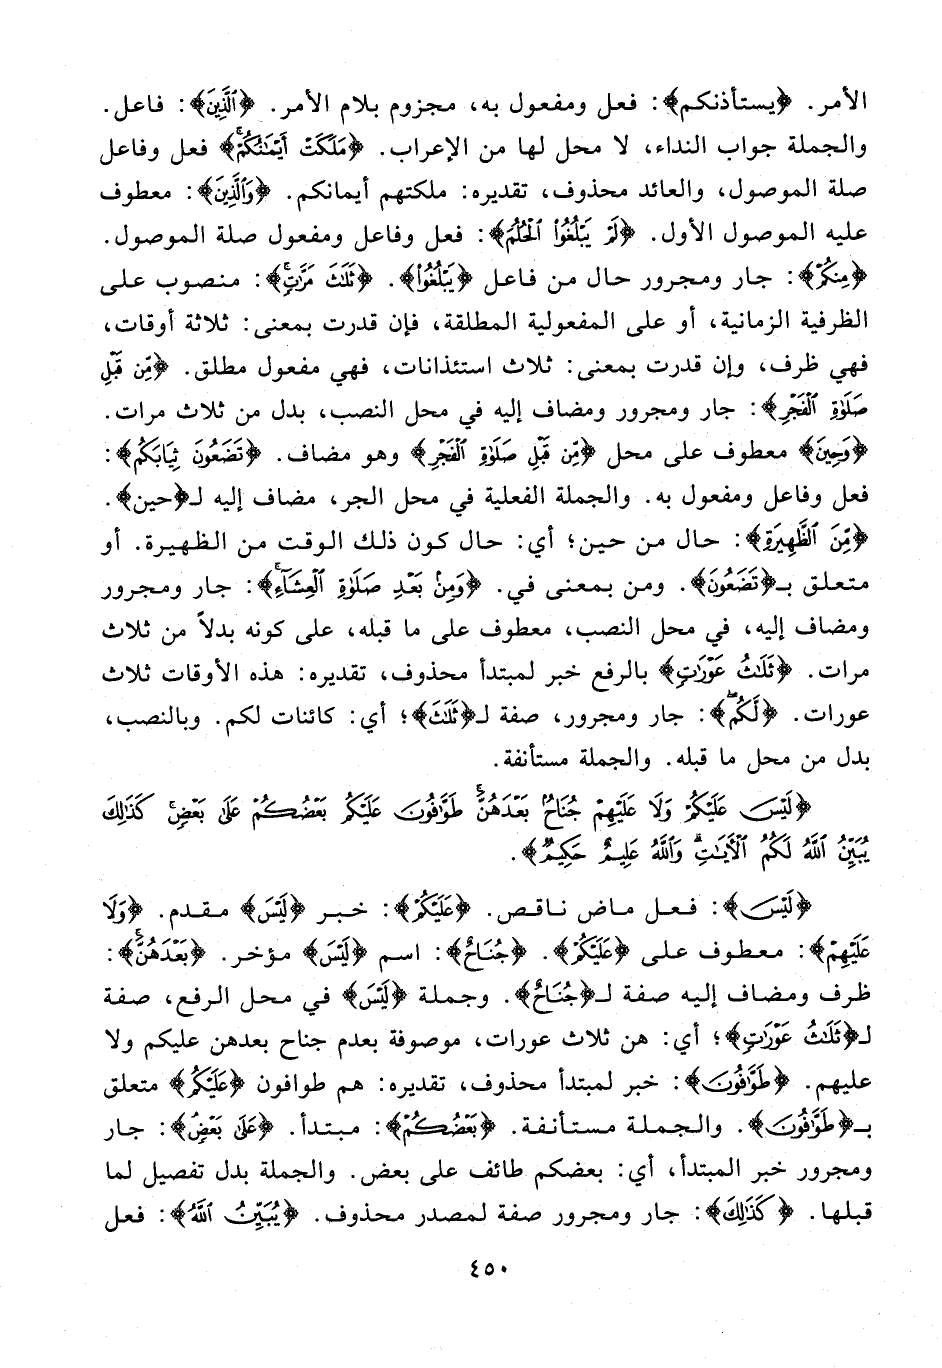 الأمر. ﴿يستأذنكم﴾: فعل ومفعول به، مجزوم بلام الأمر. ﴿ٱلَّذِينَ﴾: فاعل.
والجملة جواب النداء، لا محل لها من الإعراب. ﴿مَلَكَتْ أَيْمَٰنُكُمْ﴾ فعل وفاعل
صلة الموصول، والعائد محذوف، تقديره: ملكتهم أيمانكم. ﴿وَٱلَّذِينَ﴾: معطوف
عليه الموصول الأول. ﴿لَمْ يَبْلُغُوا۟ ٱلْحُلُمَ﴾: فعل وفاعل ومفعول صلة الموصول.
﴿مِنكُمْ﴾: جار ومجرور حال من فاعل ﴿يَبْلُغُوا۟﴾. ﴿ثَلَٰثَ مَرَّٰتٍۢ﴾: منصوب على
الظرفية الزمانية، أو على المفعولية المطلقة، فإن قدرت بمعنى: ثلاثة أوقات،
فهي ظرف، وإن قدرت بمعنى: ثلاث استئذانات، فهي مفعول مطلق. ﴿مِّن قَبْلِ
صَلَوٰةِ ٱلْفَجْرِ﴾: جار ومجرور ومضاف إليه في محل النصب، بدل من ثلاث مرات.
﴿وَحِينَ﴾ معطوف على محل ﴿مِّن قَبْلِ صَلَوٰةِ ٱلْفَجْرِ﴾ وهو مضاف. ﴿تَضَعُونَ ثِيَابَكُم﴾:
فعل وفاعل ومفعول به. والجملة الفعلية في محل الجر، مضاف إليه لـ﴿حين﴾.
﴿مِّنَ ٱلظَّهِيرَةِ﴾: حال من حين؛ أي: حال كون ذلك الوقت من الظهيرة. أو
متعلق بـ﴿تَضَعُونَ﴾. ومن بمعنى في. ﴿وَمِنۢ بَعْدِ صَلَوٰةِ ٱلْعِشَآءِ﴾: جار ومجرور
ومضاف إليه، في محل النصب، معطوف على ما قبله، على كونه بدلاً من ثلاث
مرات. ﴿ثَلَٰثُ عَوْرَٰتٍ﴾ بالرفع خبر لمبتدأ محذوف، تقديره: هذه الأوقات ثلاث
عورات. ﴿لَّكُمْ﴾: جار ومجرور، صفة لـ﴿ثَلَٰثُ﴾؛ أي: كائنات لكم. وبالنصب،
بدل من محل ما قبله. والجملة مستأنفة.
﴿لَيْسَ عَلَيْكُمْ وَلَا عَلَيْهِمْ جُنَاحٌۢ بَعْدَهُنَّ طَوَّٰفُونَ عَلَيْكُم بَعْضُكُمْ عَلَىٰ بَعْضٍ كَذَٰلِكَ
يُبَيِّنُ ٱللَّهُ لَكُمُ ٱلْءَايَٰتِ وَٱللَّهُ عَلِيمٌ حَكِيمٌ﴾.
﴿لَيْسَ﴾: فعل ماض ناقص. ﴿عَلَيْكُمْ﴾: خبر ﴿لَيْسَ﴾ مقدم. ﴿وَلَا
عَلَيْهِمْ﴾: معطوف على ﴿عَلَيْكُمْ﴾. ﴿جُنَاحٌ﴾: اسم ﴿لَيْسَ﴾ مؤخر. ﴿بَعْدَهُنَّ﴾:
ظرف ومضاف إليه صفة لـ﴿جُنَاحٌ﴾. وجملة ﴿لَيْسَ﴾ في محل الرفع، صفة
لـ﴿ثَلَٰثُ عَوْرَٰتٍ﴾؛ أي: هن ثلاث عورات، موصوفة بعدم جناح بعدهن عليكم ولا
عليهم. ﴿طَوَّٰفُونَ﴾: خبر لمبتدأ محذوف، تقديره: هم طوافون ﴿عَلَيْكُم﴾ متعلق
بـ﴿طَوَّٰفُونَ﴾. والجملة مستأنفة. ﴿بَعْضُكُمْ﴾: مبتدأ. ﴿عَلَىٰ بَعْضٍ﴾: جار
ومجرور خبر المبتدأ، أي: بعضكم طائف على بعض. والجملة بدل تفصيل لما
قبلها. ﴿كَذَٰلِكَ﴾: جار ومجرور صفة لمصدر محذوف. ﴿يُبَيِّنُ ٱللَّهُ﴾: فعل
٤٥٠